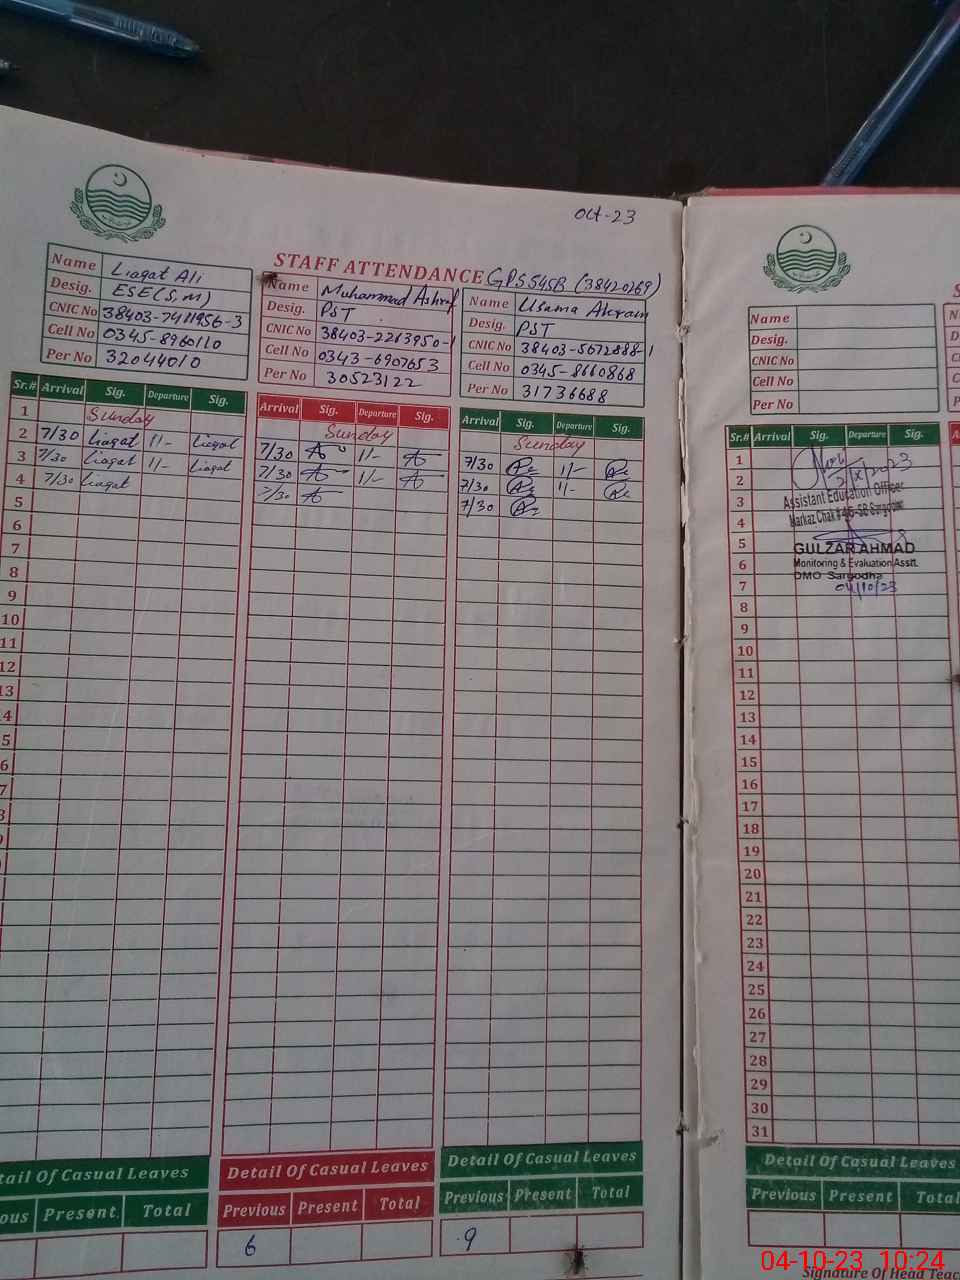 Oct-23
STAFF ATTENDANCE GPS 54SB (38420269)
Name Liaqat Ali
Desig. ESE(S.M)
CNIC No 38403-7411956-3
Cell No 0345-8960110
Per No 32044010
Name Muhammad Ashraf
Desig. PST
CNIC No 38403-2263950-1
Cell No 0343-6907653
Per No 30523122
Name Usama Akram
Desig. PST
CNIC No 38403-5672888-1
Cell No 0345-8660868
Per No 31736688
Sr.# Arrival Sig. Departure Sig.
1 Sunday
2 7/30 Liaqat 1/- Liaqat
3 7/30 Liaqat 1/- Liaqat
4 7/30 Liaqat
5
6
7
8
9
10
11
12
13
14
5
6
7
8
9
Arrival Sig. Departure Sig.
Sunday
7/30 1/-
7/30 1/-
7/30
Arrival Sig. Departure Sig.
Sunday
7/30 1/-
7/30 1/-
7/30
tail Of Casual Leaves
ous Present Total
Detail Of Casual Leaves
Previous Present Total
6
Detail Of Casual Leaves
Previous Present Total
9
Name
Desig.
CNIC No
Cell No
Per No
Sr.# Arrival Sig. Departure Sig.
1
2
3
4
5
6
7
8
9
10
11
12
13
14
15
16
17
18
19
20
21
22
23
24
25
26
27
28
29
30
31
2/X/2023
Assistant Education Officer
Markaz Chak # 46-SB Sargodha
GULZAR AHMAD
Monitoring & Evaluation Asstt.
DMO Sargodha
04/10/23
Detail Of Casual Leaves
Previous Present Total
Signature Of Head Teac
04-10-23 10:24